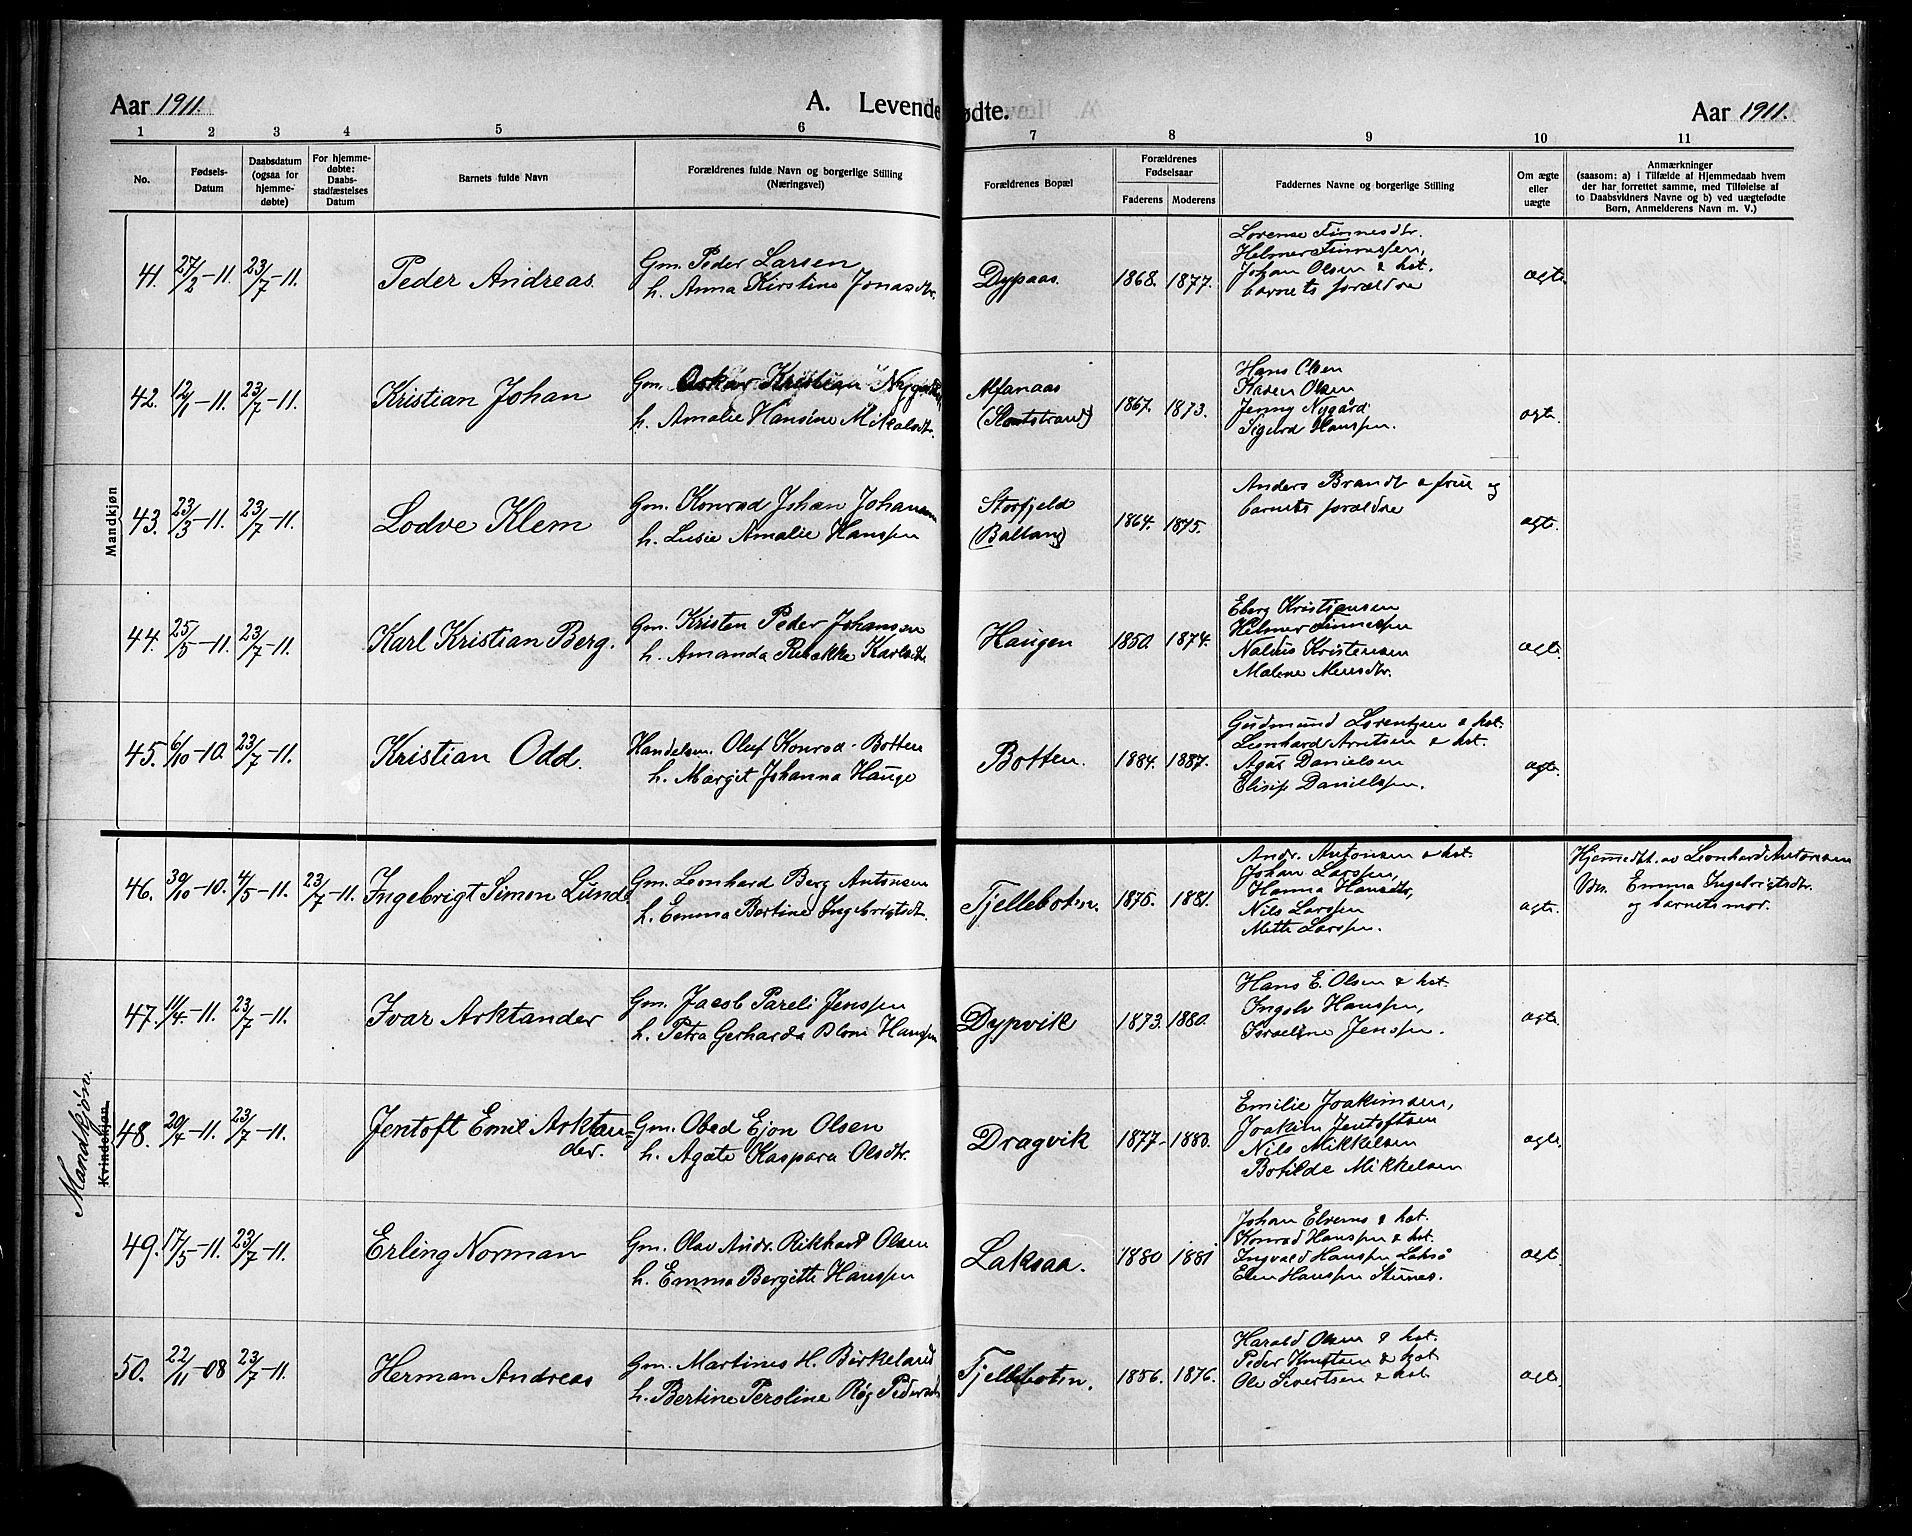 Aar 1911. A. Levendefødte. Aar 1911.
1 2 3 4 5 6 7 8 9 10 11
No. Fødsels-Datum Daabsdatum (ogsaa for hjemme-døbte) For hjemme-døbte: Daabs-stadfæstelses Datum Barnets fulde Navn Forældrenes fulde Navn og borgerlige Stilling (Næringsvei) Forældrenes Bopæl Forældrenes Fødselsaar Faderens Moderens Faddernes Navne og borgerlige Stilling Om ægte eller uægte Anmærkninger (saasom: a) i Tilfælde af Hjemmedaab hvem der har forrettet samme, med Tilføielse af to Daabsvidners Navne og b) ved uægtefødte Børn, Anmelderens Navn m. V.)
Mandkjøn
41. 27/2-11. 23/7-11. Peder Andreas. Gm. Peder Larsen
h. Anna Kirstine Jonasdtr. Dypaas. 1868. 1877. Lorense Finnesdtr.
Helmer Finnessen,
Johan Olsen & hst.
barnets forældre
ægte.
42. 12/1-11. 23/7-11. Kristian Johan Gm. Oskar Kristian
h. Amalie Hansine Mikalsdtr. Alfanaas
1867. 1873. Hans Olsen
Karen Olsen
Jenny Nygård
Sigurd Hanssen.
ægte.
43. 23/3-11. 23/7-11. Lodve Klem Gm. Konrad Johan Johansen
h. Lusie Amalie Hanssen Storfjeld
(Ballang) 1864. 1875. Anders Brandt & frue og
barnets forældre
ægte.
44. 25/5-11. 23/7-11. Karl Kristian Berg. Gm. Kristen Peder Johansen
h. Amanda Rebekke Karlsdtr. Haugen 1850. 1874. Eberg Kristiansen
Helmer Finnessen
Kristensen
Malene
ægte.
45. 6/10-10. 23/7-11. Kristian Odd. Handelsm. Oluf Konrad Botten
h. Margit Johanna Hauge Botten. 1884. 1887. Gudmund Lorentzen & hst.
Leonhard Arntsen & hst.
Danielsen
Elisif Danielssen.
ægte.
46. 30/10-10. 4/5-11. 23/7-11. Ingebrigt Simon Lunde Gm. Leonhard Berg Antonsen
h. Emma Bertine Ingebrigtsdt. Fjellebotn. 1875. 1881. Andr. Antonsen & hst.
Johan Larssen,
Hanna Hansdtr,
Nils Larssen
Mette Larssen.
ægte. Hjemmedt. av Leonhard Antonsen
Vdn. Emma Ingebrigtsdtr.
og barnets mor.
47. 11/4-11. 23/7-11. Ivar Arktander Gm. Jacob Pareli Jenssen
h. Petra Gerharda Blom Hanssen Dypvik 1873. 1880. Hans E. Olsen & hst.
Ingolv Hanssen,
Israeline Jenssen.
ægte.
Mandkjøn.
Kvindekjøn
48. 20/4-11. 23/7-11. Jentoft Emil Arktan-
der. Gm. Obed Ejon Olsen
h. Agate Kaspara Olsdtr. Dragvik 1877. 1883. Emilie Joakimsen,
Joakim Jentoftsen
Nils Mikkelsen
Botilde Mikkelsen
ægte.
49. 17/5-11. 23/7-11. Erling Norman Gm. Olav Andr. Rikhard Olsen
h. Emma Bergitte Hanssen Laksaa. 1880 1881 Johan Elvenes & hst.
Konrad Hanssen & hst.
Ingvald Hanssen Lakså
Elen Hanssen
ægt.
50. 22/11-08 23/7-11. Herman Andreas Gm. Martines H. Birkeland
h. Bertine Peroline Røg Pedersdtr Fjellebotn. 1886. 1876. Harald Olsen & hst.
Peder Knutsen & hst.
Ole Sivertsen & hst.
ægte.